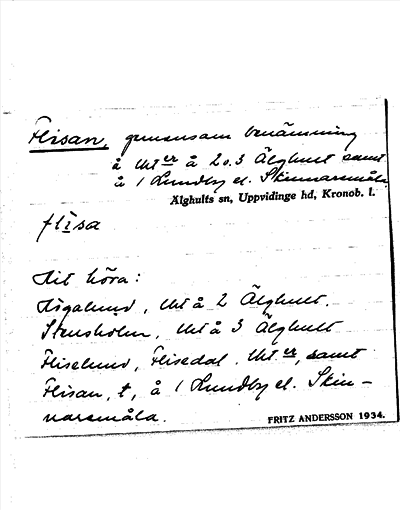 Flisan, gemensam benämning
å lht er å 2 o. 3 Älghult samt
å 1 Lundby el. Skinnarsmåla.
Älghults sn, Uppvidinge hd, Kronob. l.
flisa
Hit höra:
Högalund, lht å 2 Älghult.
Stensholm, lht å 3 Älghult
Fliselund, Flisedal. lht er, samt
Flisan, t, å 1 Lundby el. Skin-
narsmåla.
FRITZ ANDERSSON 1934.